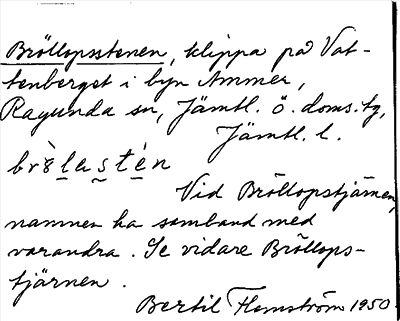 Bröllopsstenen, klippa på Vat-
tenberget i byn Ammer,
Ragunda sn, Jämtl. ö. doms.tg,
Jämtl. l.
brö̀lastén
Vid Bröllopstjärnen,
namnen ha samband med
varandra. Se vidare Bröllops-
tjärnen.
Bertil Flemström 1950.